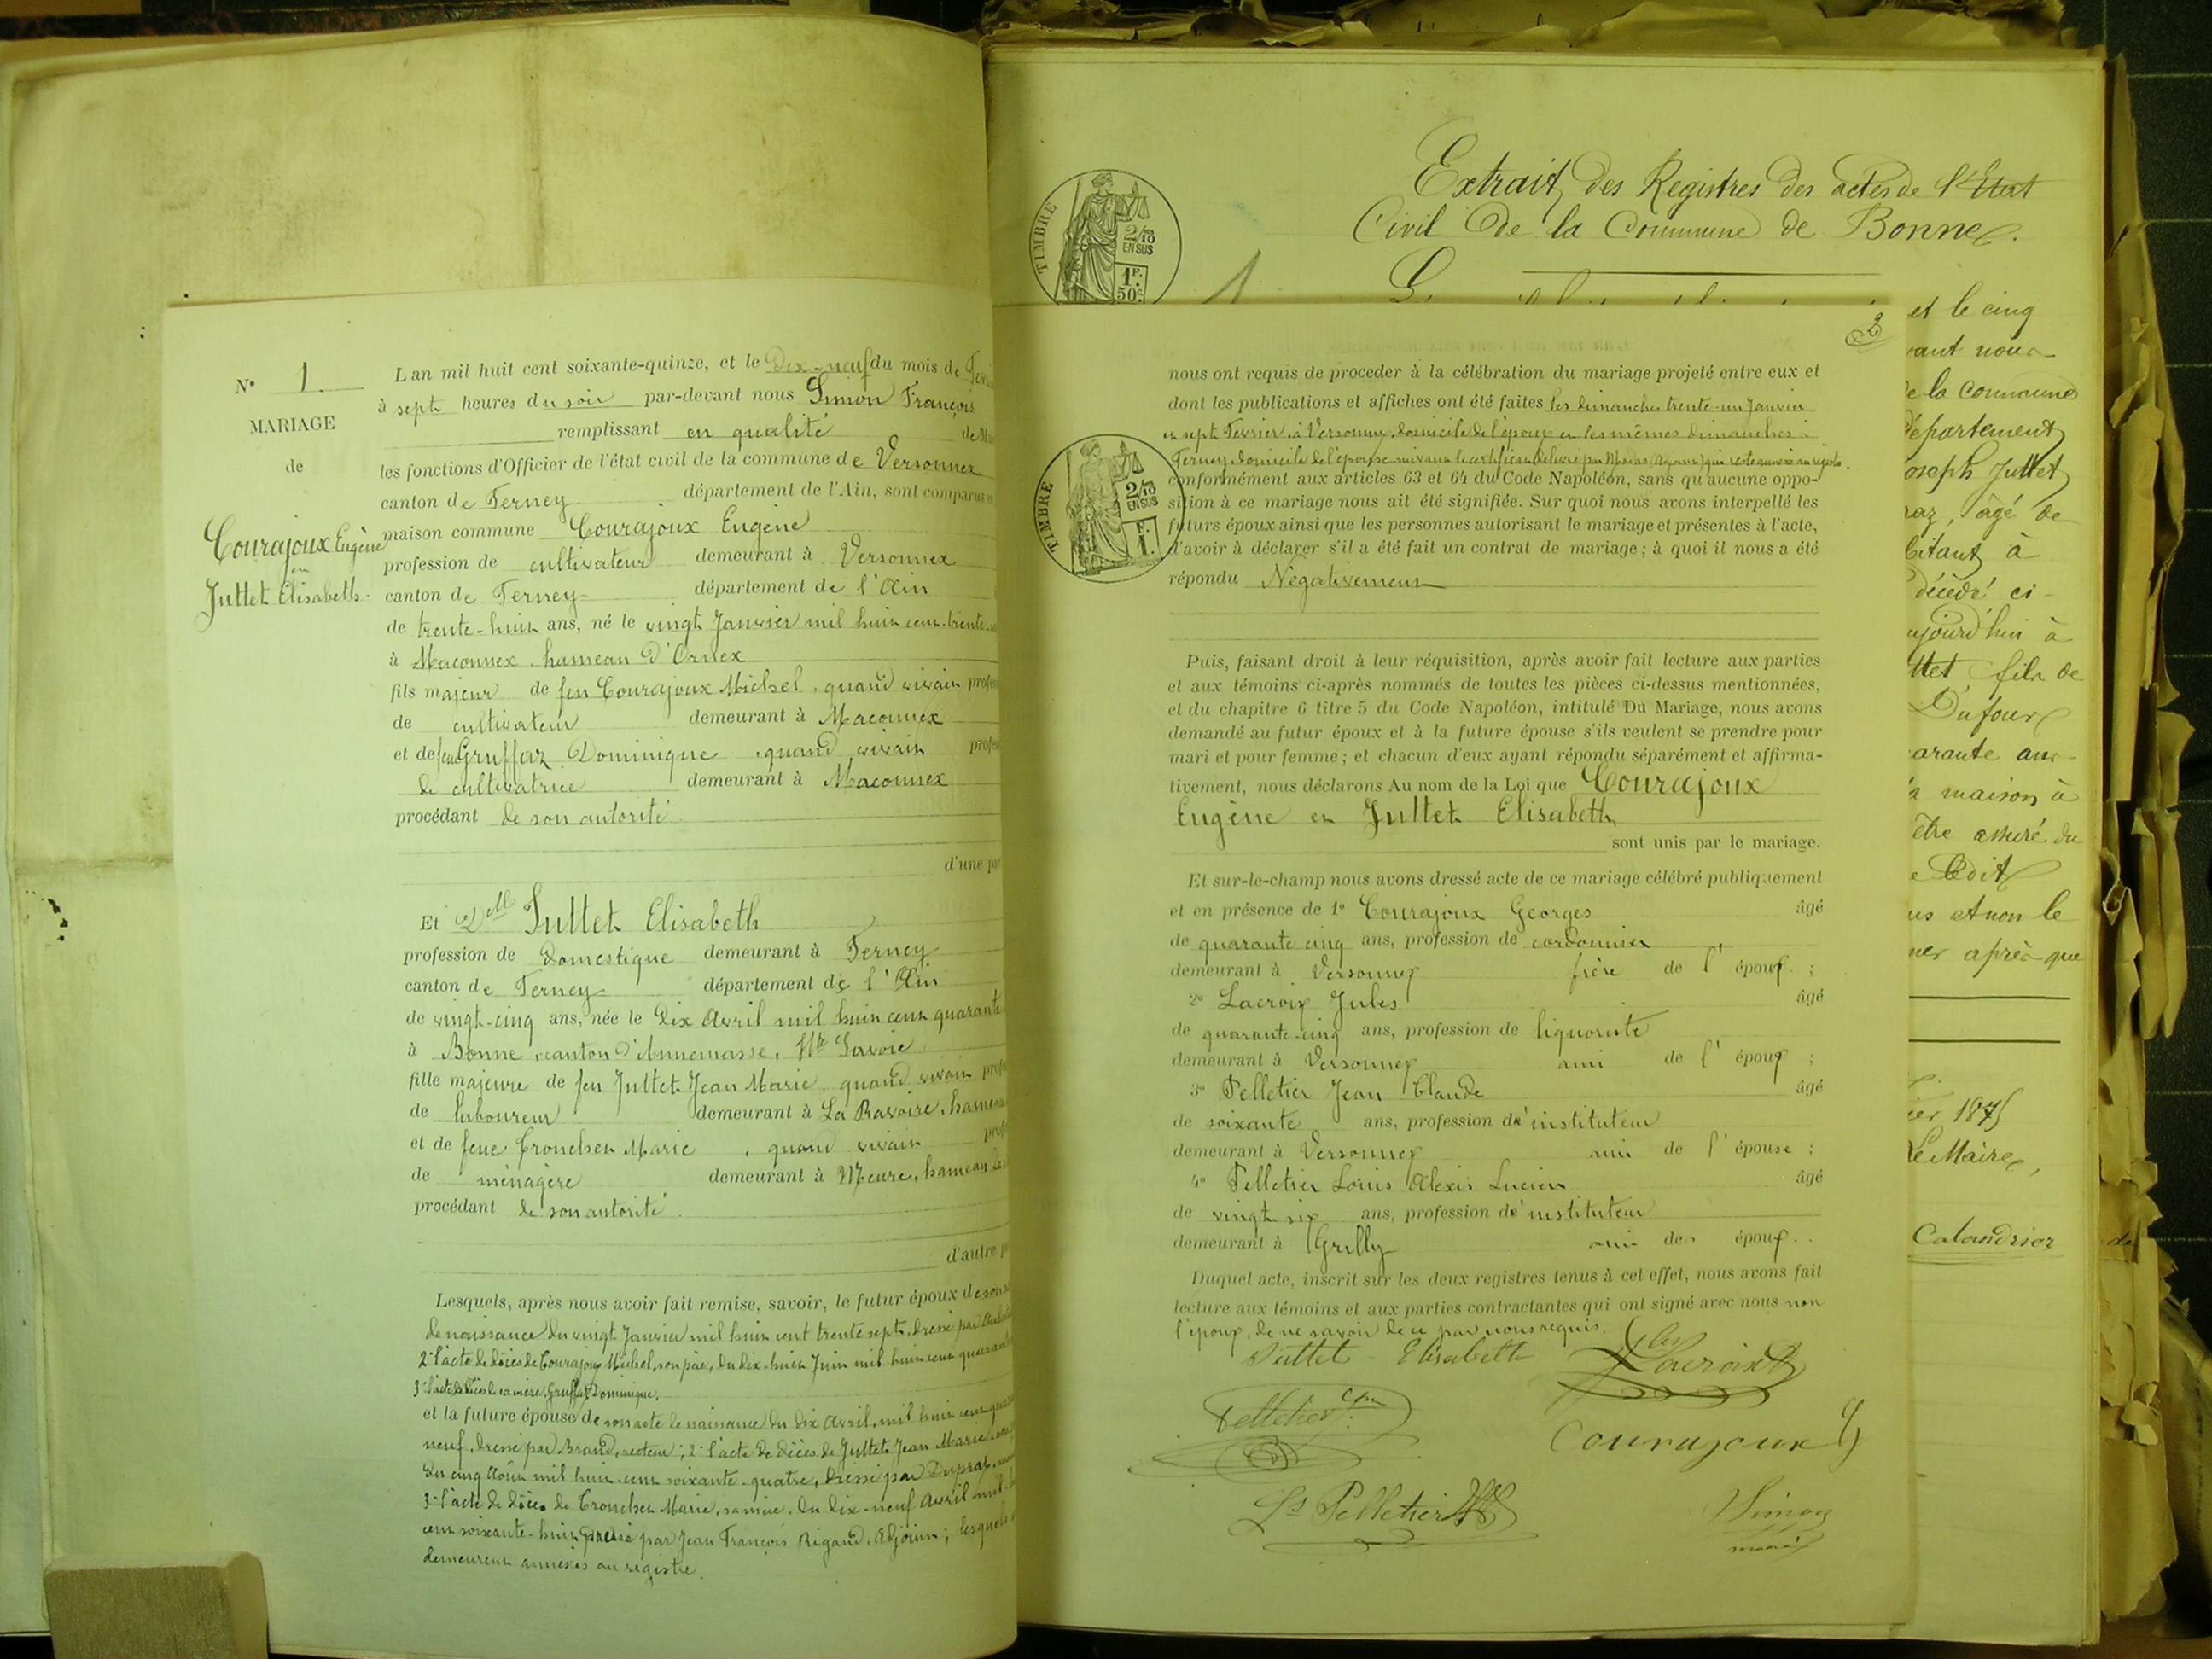 N° 1
MARIAGE
de
Courajoux Eugène
en
Juttet Elisabeth.
Lan mil huit cent soixante-quinze, et le Dix-neuf du mois de
à sept heures du soir par-devant nous Simon François
remplissant en qualité de
les fonctions d'Officier de l'état civil de la commune de Versonnex
canton de Ferney département de l'Ain, sont comparus
maison commune Courajoux Eugène
profession de cultivateur demeurant à Versonnex
canton de Ferney département de l'Ain
de trente-huit ans, né le vingt Janvier mil huit cent trente
à Maconnex hameau d'Ornex
fils majeur de feu Courajoux Michel, quand vivait
de cultivateur demeurant à Maconnex
et de feu Gruffaz Dominique, quand vivait
de cultivatrice demeurant à Maconnex
procédant de son autorité
d'une
Et Dll Juttet Elisabeth
profession de Domestique demeurant à Ferney
canton de Ferney département de l'Ain
de vingt-cinq ans, née le Dix Avril mil huit cent quarante
à Bonne, canton d'Annemasse, Hte Savoie
fille majeure de feu Juttet Jean Marie quand vivait
de laboureur demeurant à La Ravoire, hameau
et de feue Tronchet Marie, quand vivait
de ménagère demeurant à hameau
procédant de son autorité
d'autre
Lesquels, après nous avoir fait remise, savoir, le futur époux de son
de naissance du vingt Janvier mil huit cent trente sept, dressé par
2° l'acte de décès de Courajoux Michel, son père, du dix-huit Juin mil huit cent
3° l'acte de décès de sa mère Gruffaz Dominique.
et la future épouse de son acte de naissance du dix Avril mil huit cent
neuf, dressé par Brand, recteur; 2° l'acte de décès de Juttet Jean Marie
du cinq Août mil huit cent soixante-quatre, dressé par Dupraz
3° l'acte de décès de Tronchet Marie, sa mère, du dix-neuf Avril mil
cent soixante-huit dressé par Jean François Rigaud, Adjoint; lesquels
demeurent annexés au registre.
Extrait des Registres des actes de l'Etat
Civil de la Commune de Bonne.
TIMBRE
2/10
EN SUS
1F.
50c
1
2
nous ont requis de proceder à la célébration du mariage projeté entre eux et
dont les publications et affiches ont été faites les dimanches trente-un Janvier
et sept Fevrier à Versonnex, domicile de l'époux et les mêmes dimanches à
Ferney domicile de l'épouse suivant le certificat délivré par qui reste annexé au registre.
conformément aux articles 63 et 64 du Code Napoléon, sans qu'aucune oppo-
sition à ce mariage nous ait été signifiée. Sur quoi nous avons interpellé les
futurs époux ainsi que les personnes autorisant le mariage et présentes à l'acte,
d'avoir à déclarer s'il a été fait un contrat de mariage; à quoi il nous a été
répondu Négativement
TIMBRE
2/10
EN SUS
F.
1.
Puis, faisant droit à leur réquisition, après avoir fait lecture aux parties
et aux témoins ci-après nommés de toutes les pièces ci-dessus mentionnées,
et du chapitre 6 titre 5 du Code Napoléon, intitulé Du Mariage, nous avons
demandé au futur époux et à la future épouse s'ils veulent se prendre pour
mari et pour femme; et chacun d'eux ayant répondu séparément et affirma-
tivement, nous déclarons Au nom de la Loi que Courajoux
Eugène et Juttet Elisabeth
sont unis par le mariage.
Et sur-le-champ nous avons dressé acte de ce mariage célébré publiquement
et en présence de 1° Courajoux Georges âgé
de quarante cinq ans, profession de cordonnier
demeurant à Versonnex frère de l'époux ;
2° Lacroix Jules âgé
de quarante-cinq ans, profession de liquoriste
demeurant à Versonnex ami de l'époux ;
3° Pelletier Jean Claude âgé
de soixante ans, profession d'instituteur
demeurant à Versonnex ami de l'épouse ;
4° Pelletier Louis Alexis Lucien âgé
de vingt six ans, profession d'instituteur
demeurant à Grilly ami des époux.
Duquel acte, inscrit sur les deux registres tenus à cet effet, nous avons fait
lecture aux témoins et aux parties contractantes qui ont signé avec nous non
l'époux, de ne savoir de ce par nous requis.
Juttet Elisabeth
Lacroix
Pelletier
Courajoux G
Ls Pelletier
Simon
maire
et le cinq
vant nous
de la commune
département
oseph Juttet
raz, âgé de
bitant à
décédé ci-
ujourd'hui à
ttet fils de
Dufour
arante ans
maison à
être assuré du
e ledit
us et non le
ner après que
ier 1875
Le Maire,
Calandrier